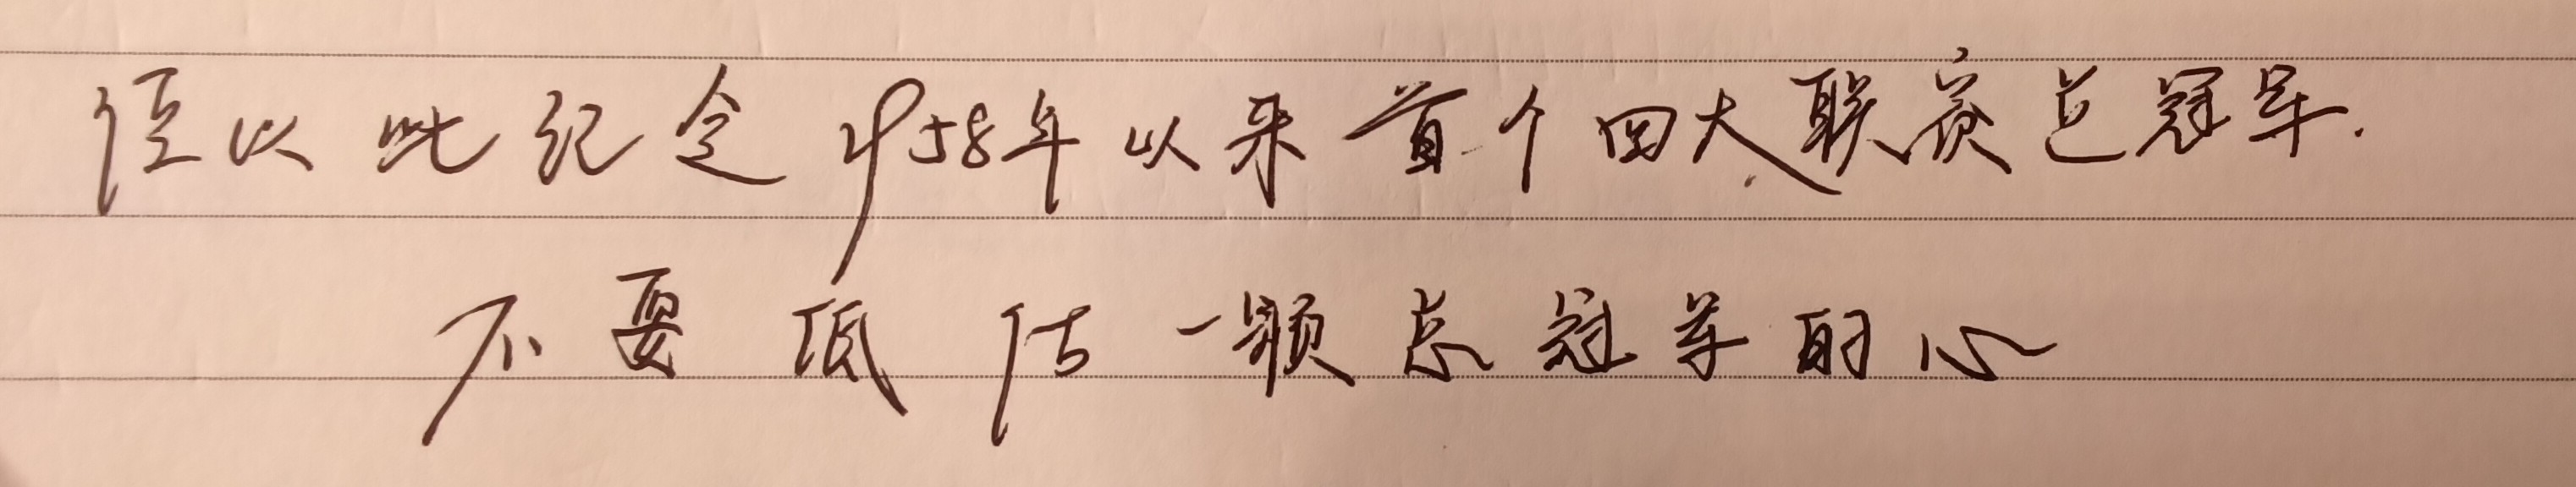 谨以此纪念1958年以来首个四大联赛总冠军.
不要低估一颗总冠军的心